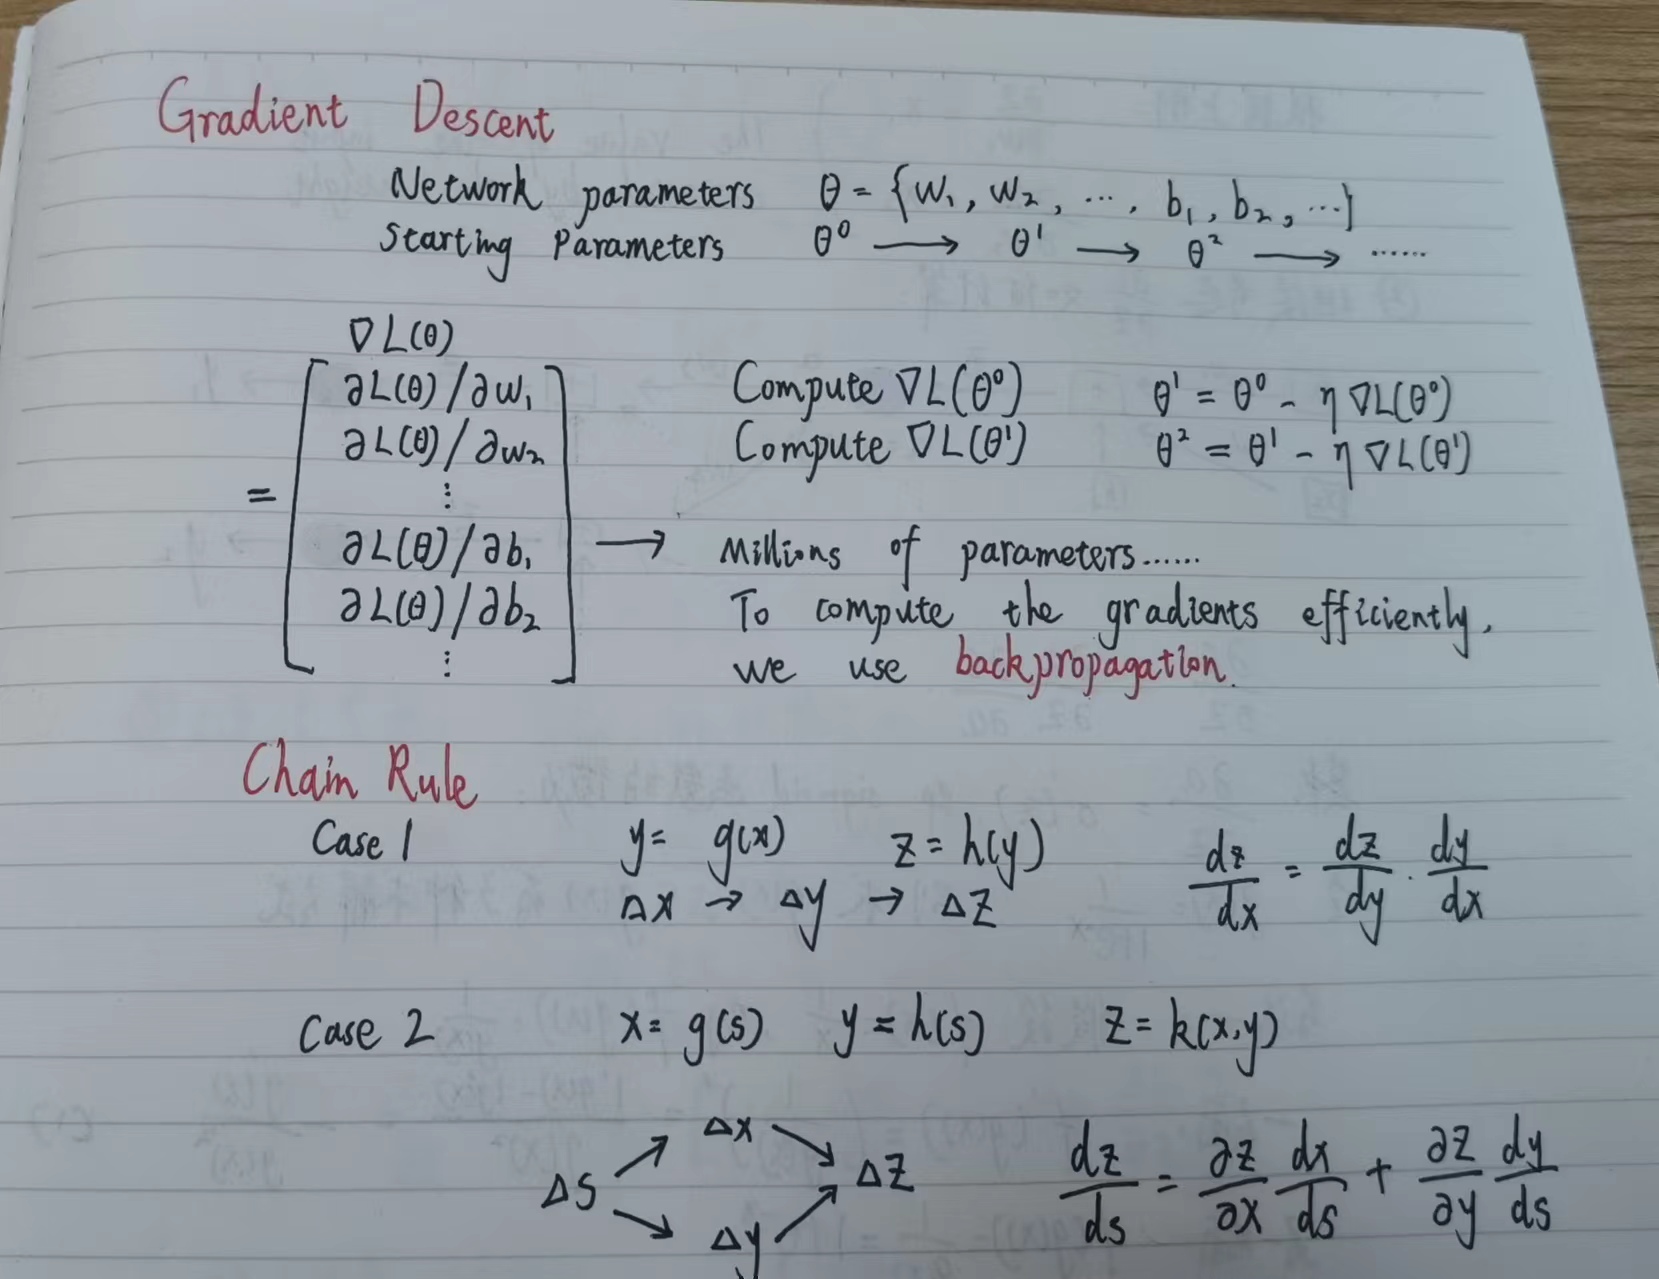 Gradient Descent
Network parameters θ = {w₁, w₂, ..., b₁, b₂, ...}
Starting Parameters θ⁰ → θ¹ → θ² → ......
∇L(θ)
= [ ∂L(θ)/∂w₁
∂L(θ)/∂w₂
⋮
∂L(θ)/∂b₁
∂L(θ)/∂b₂
⋮ ]
Compute ∇L(θ⁰) θ¹ = θ⁰ - η∇L(θ⁰)
Compute ∇L(θ¹) θ² = θ¹ - η∇L(θ¹)
→ Millions of parameters......
To compute the gradients efficiently,
we use backpropagation.
Chain Rule
Case 1 y = g(x) z = h(y) dz/dx = dz/dy · dy/dx
Δx → Δy → Δz
Case 2 x = g(s) y = h(s) z = k(x,y)
Δs ↗ Δx ↘ Δz
Δs ↘ Δy ↗ Δz
dz/ds = ∂z/∂x dx/ds + ∂z/∂y dy/ds